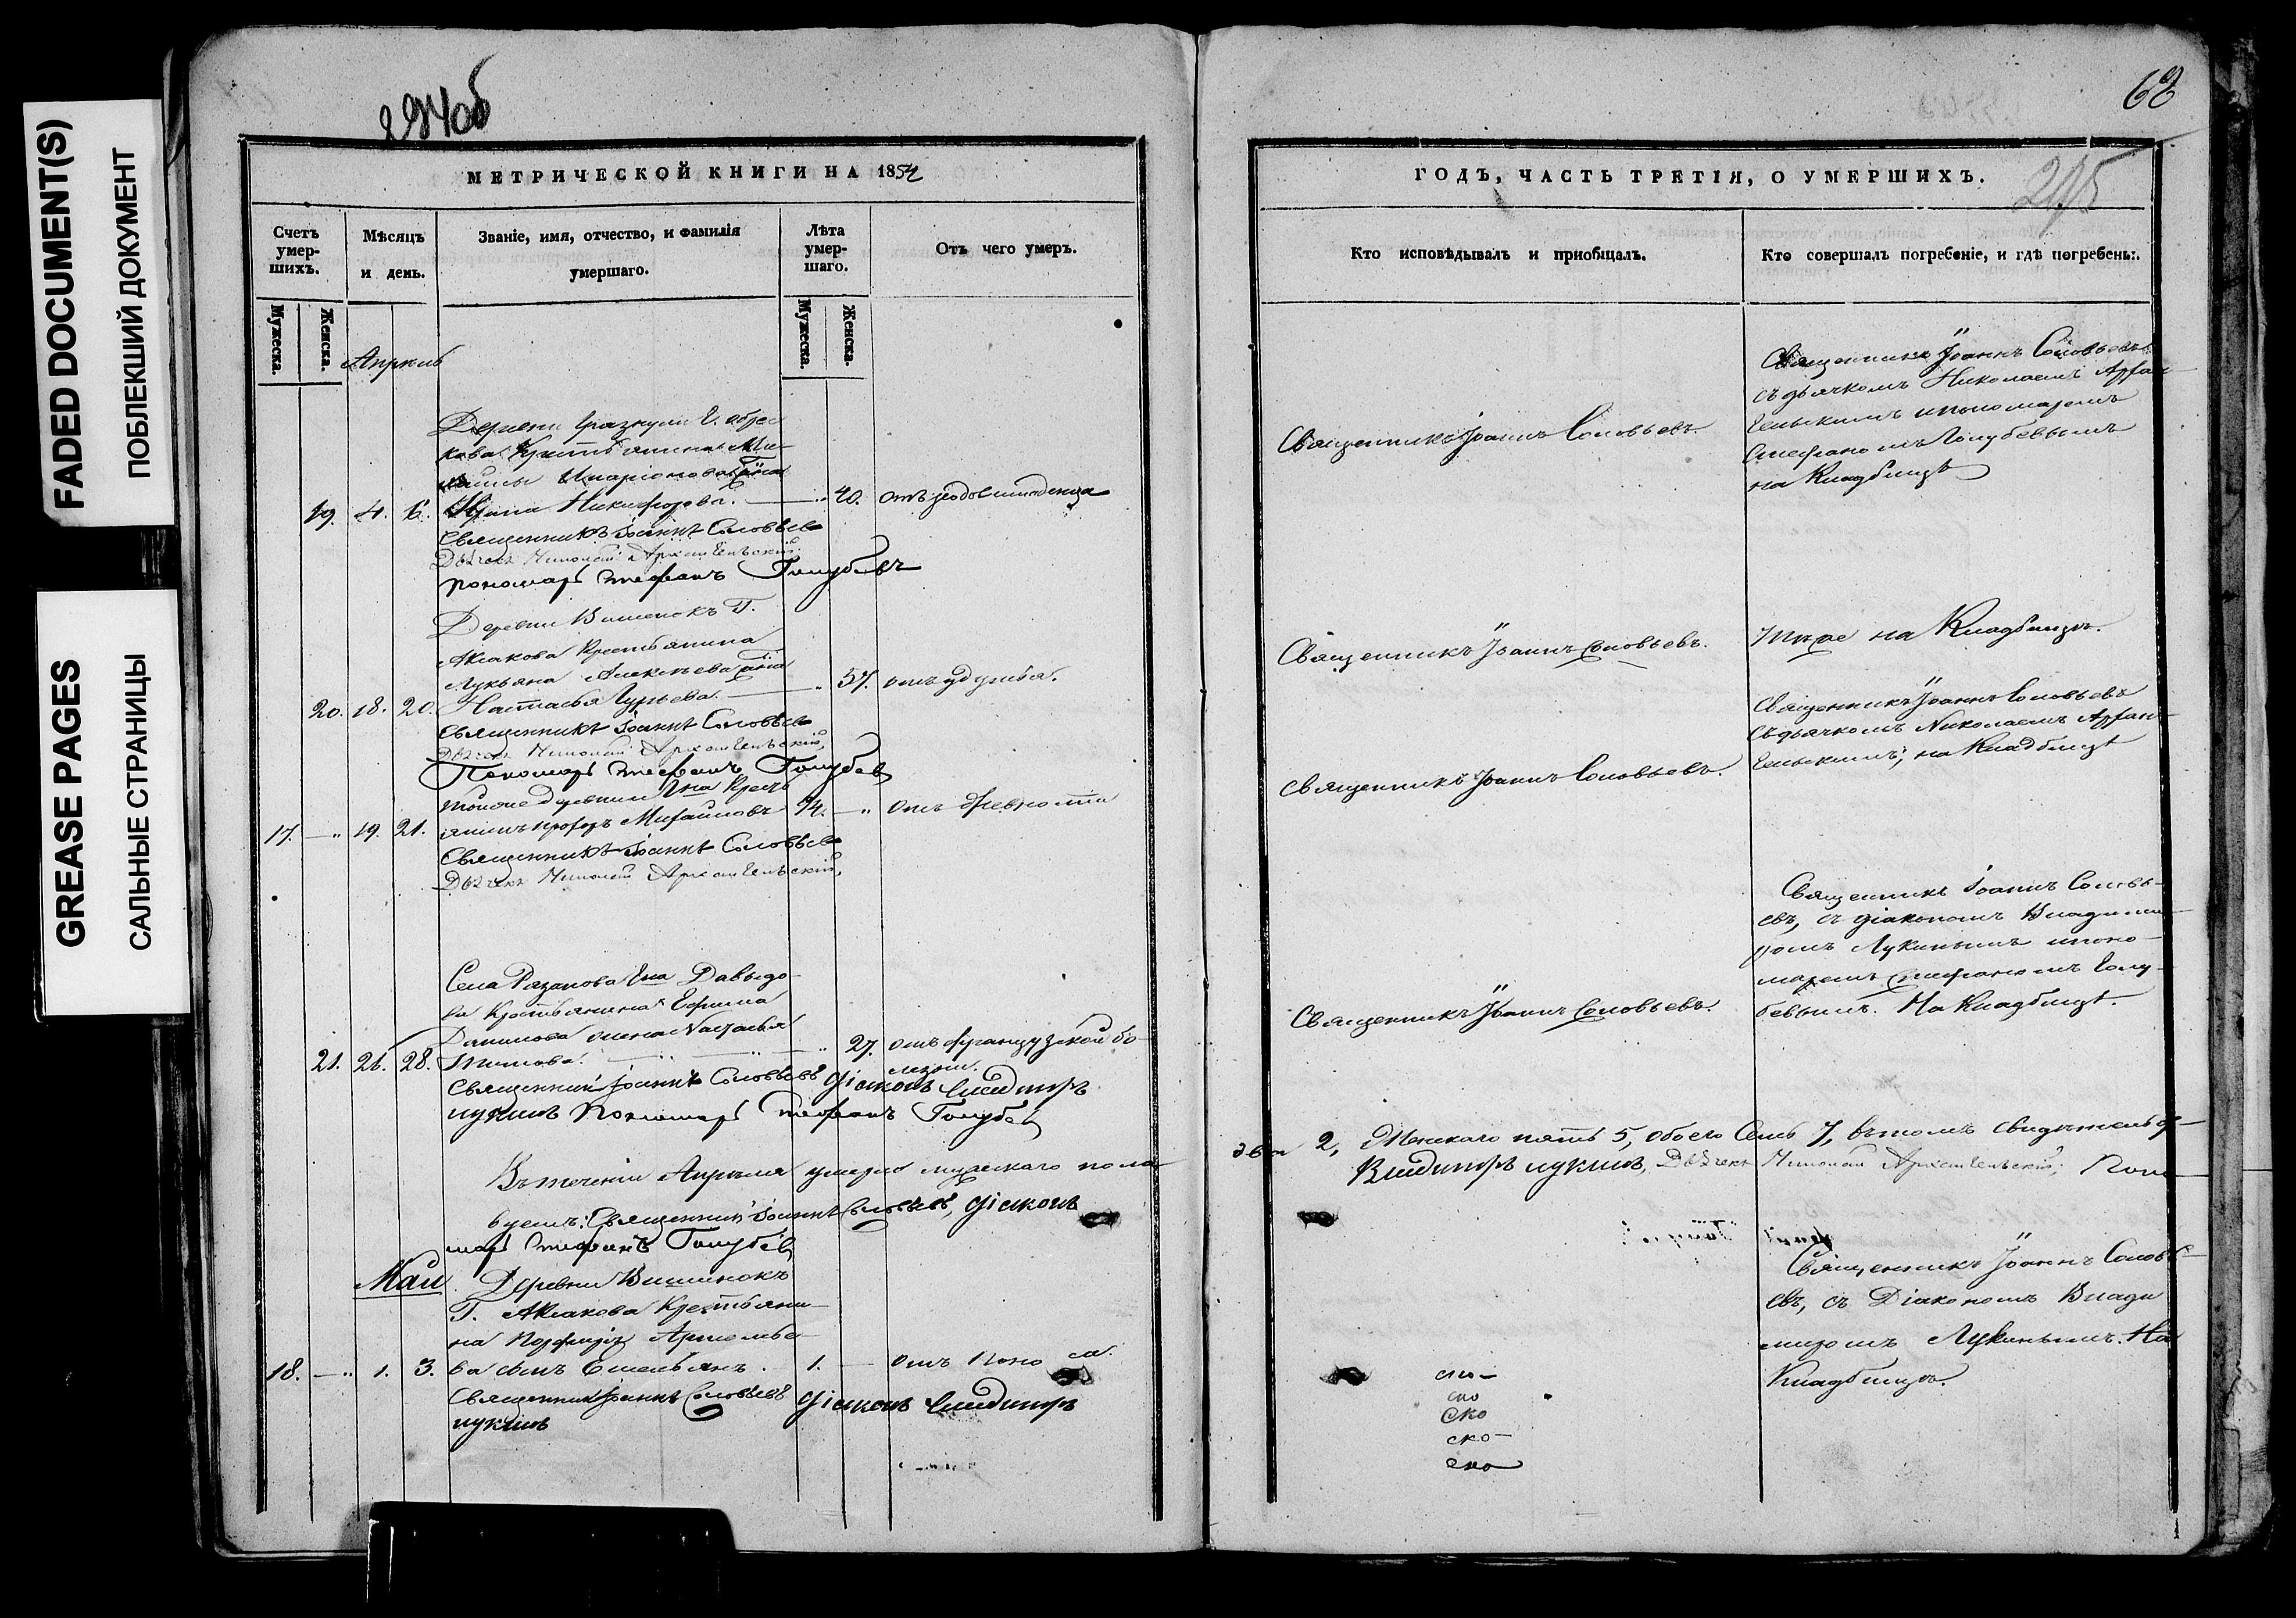 FADED DOCUMENT(S)
ПОБЛЕКШИЙ ДОКУМЕНТ
GREASE PAGES
САЛЬНЫЕ СТРАНИЦЫ
294об
МЕТРИЧЕСКОЙ КНИГИ НА 1854
Счетъ умер-шихъ.
Мѣсяцъ и день.
Званіе, имя, отчество, и фамилія умершаго.
Лѣта умер-шаго.
Отъ чего умеръ.
Мужеска.
Женска.
Мужеска.
Женска.
Апрѣль
Деревни
кова Крестьянина
Иларіонова жена
19. 4. 6. Никифорова. 40.
Священникъ Іоаннъ Соловьевъ
Дьячекъ Николай Архангельскій,
Пономарь Стефанъ Голубевъ
Деревни Вишенокъ Г.
Аксакова Крестьянина
Лукьяна Алексѣева жена
20. 18. 20. Настасья Гурьева. 57. отъ удушья.
Священникъ Іоаннъ Соловьевъ
Дьячекъ Николай Архангельскій,
Пономарь Стефанъ Голубевъ
тойже деревни Гна Кресть
17. 19. 21. янинъ Михайловъ 94. отъ древности
Священникъ Іоаннъ Соловьевъ
Дьячекъ Николай Архангельскій,
Села Рязанова Гна Давыдо-
ва Крестьянина Ефима
Данилова жена Настасья
21. 26. 28. Титова. 27. отъ французской бо-
лезни.
Священникъ Іоаннъ Соловьевъ Діаконъ Владиміръ
Лукинъ Пономарь Стефанъ Голубевъ
Въ теченіи Апрѣля умерло мужескаго пола
вуемъ: Священникъ Іоаннъ Соловьевъ, Діаконъ
марь Стефанъ Голубевъ
Май
Деревни Вишинокъ
Г. Аксакова Крестьяни-
на Порфирія Артемье-
18. 1. 3. ва сынъ Емельянъ. 1. отъ поноса.
Священникъ Іоаннъ Соловьевъ Діаконъ Владиміръ
Лукинъ
62
ГОДЪ, ЧАСТЬ ТРЕТІЯ, О УМЕРШИХЪ.
295
Кто исповѣдывалъ и пріобщалъ.
Кто совершалъ погребеніе, и гдѣ погребены.
Священникъ Іоаннъ Соловьевъ.
Священникъ Іоаннъ Соловьевъ
съ дьячкомъ Николаемъ Архан-
гельскимъ и пономаремъ
Стефаномъ Голубевымъ
на Кладбищѣ
Священникъ Іоаннъ Соловьевъ.
Тѣже на Кладбищѣ.
Священникъ Іоаннъ Соловьевъ.
Священникъ Іоаннъ Соловьевъ
съ дьячкомъ Николаемъ Архан-
гельскимъ, на Кладбищѣ
Священникъ Іоаннъ Соловьевъ.
Священникъ Іоаннъ Соловь-
евъ, съ діакономъ Влади-
ромъ Лукинымъ и поно-
маремъ Стефаномъ Голу-
бевымъ. На Кладбищѣ.
два 2, Женскаго пять 5, обоего Семь 7, въ томъ свидѣтельст-
Владиміръ Лукинъ, Дьячекъ Николай Архангельскій, Поно-
Священникъ Іоаннъ Соловь-
евъ, съ Діакономъ Влади
миромъ Лукинымъ. На
Кладбищѣ.
ско
ско
ско-
ско